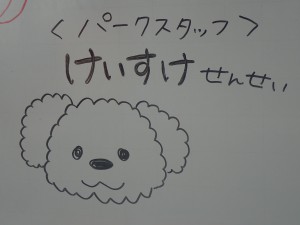 〈パークスタッフ〉
けいすけ せんせい